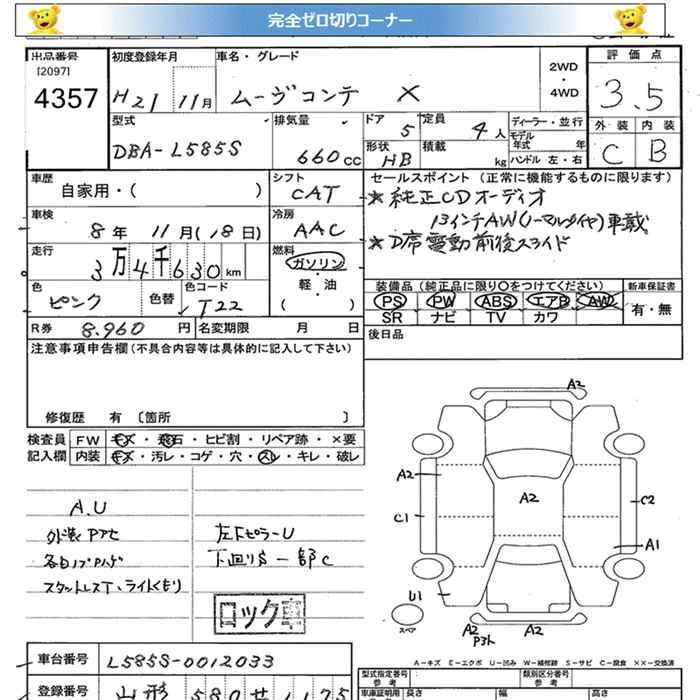 完全ゼロ切りコーナー
出品番号
[2097]
4357
初度登録年月
H21 11月
車名・グレード
ムーヴコンテ X
2WD
・
4WD
評価点
3.5
外装 内装
C B
型式
DBA-L585S
排気量
660cc
ドア 5
定員 4人
形状 HB
積載 kg
ディーラー・並行
モデル
年式 年
ハンドル 左・右
車歴
自家用・( )
シフト
CAT
セールスポイント(正常に機能するものに限ります)
★純正CDオーディオ
13インチAW(ノーマルタイヤ)車載
★D席電動前後スライド
車検
8年 11月(18日)
冷房
AAC
走行
3万4千630km
燃料
ガソリン
・
軽・油
( )
色
ピンク
色替
色コード
T22
装備品(純正品に限り○をつけてください)
PS PW ABS エアB AW
SR ナビ TV カワ
新車保証書
有・無
R券 8.960円
名変期限 月 日
後日品
注意事項申告欄(不具合内容等は具体的に記入して下さい)
修復歴 有 〔箇所 〕
検査員
記入欄
FW キズ・飛石・ヒビ割・リペア跡・×要
内装 キズ・汚レ・コゲ・穴・スレ・キレ・破レ
A.U
外装Pアセ
各ロノブPハゲ
スタットレスT、ライトくもり
左FピラーU
下廻りS一部C
ロック車
A2
A2
A2
C1
C2
A1
U1
スペア
A2
Pヌケ
A2
A-キズ E-エクボ U-凹み W-補修跡 S-サビ C-腐食 ××-交換済
車台番号
L585S-0012033
登録番号
山形 580せ1175
型式指定番号
参考
類別区分番号
参考
車庫証明用
長さ 幅 高さ